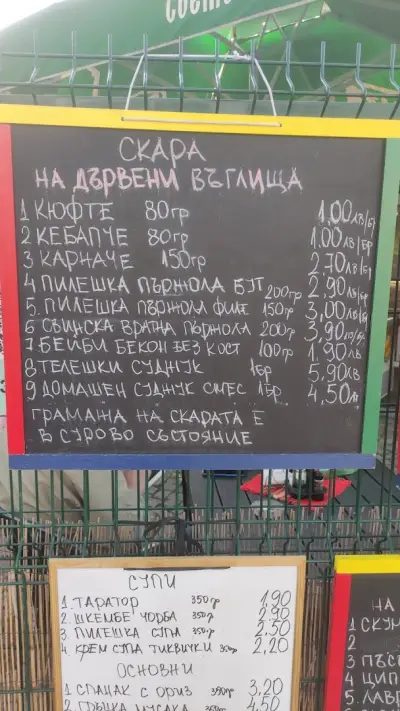 СКАРА
НА ДЪРВЕНИ ВЪГЛИЩА
1 КЮФТЕ 80гр 1,00лв/бр
2 КЕБАПЧЕ 80гр 1,00лв/бр
3 КАРНАЧЕ 150гр 2,70лв/бр
4 ПИЛЕШКА ПЪРЖОЛА БУТ 200гр 2,90лв/бр
5. ПИЛЕШКА ПЪРЖОЛА ФИЛЕ 150гр 3,00лв/бр
6 СВИНСКА ВРАТНА ПЪРЖОЛА 200гр 3,90лв/бр
7. БЕЙБИ БЕКОН БЕЗ КОСТ 100гр 1,90лв
8 ТЕЛЕШКИ СУДЖУК 1бр 5,90лв
9 ДОМАШЕН СУДЖУК СМЕС 1бр. 4,50лв
ГРАМАЖА НА СКАРАТА Е
В СУРОВО СЪСТОЯНИЕ
СУПИ
1. ТАРАТОР 350гр 1,90
2. ШКЕМБЕ ЧОРБА 350гр 2,90
3. ПИЛЕШКА СУПА 350гр 2,50
4 КРЕМ СУПА ТИКВИЧКИ 350гр 2,20
ОСНОВНИ
1 СПАНАК С ОРИЗ 350гр 3,20
2 ГРЪЦКА МУСАКА 4,50
НА
1 СКУМ
2
3 ПЪС
4 ЦИП
5. ЛАВР